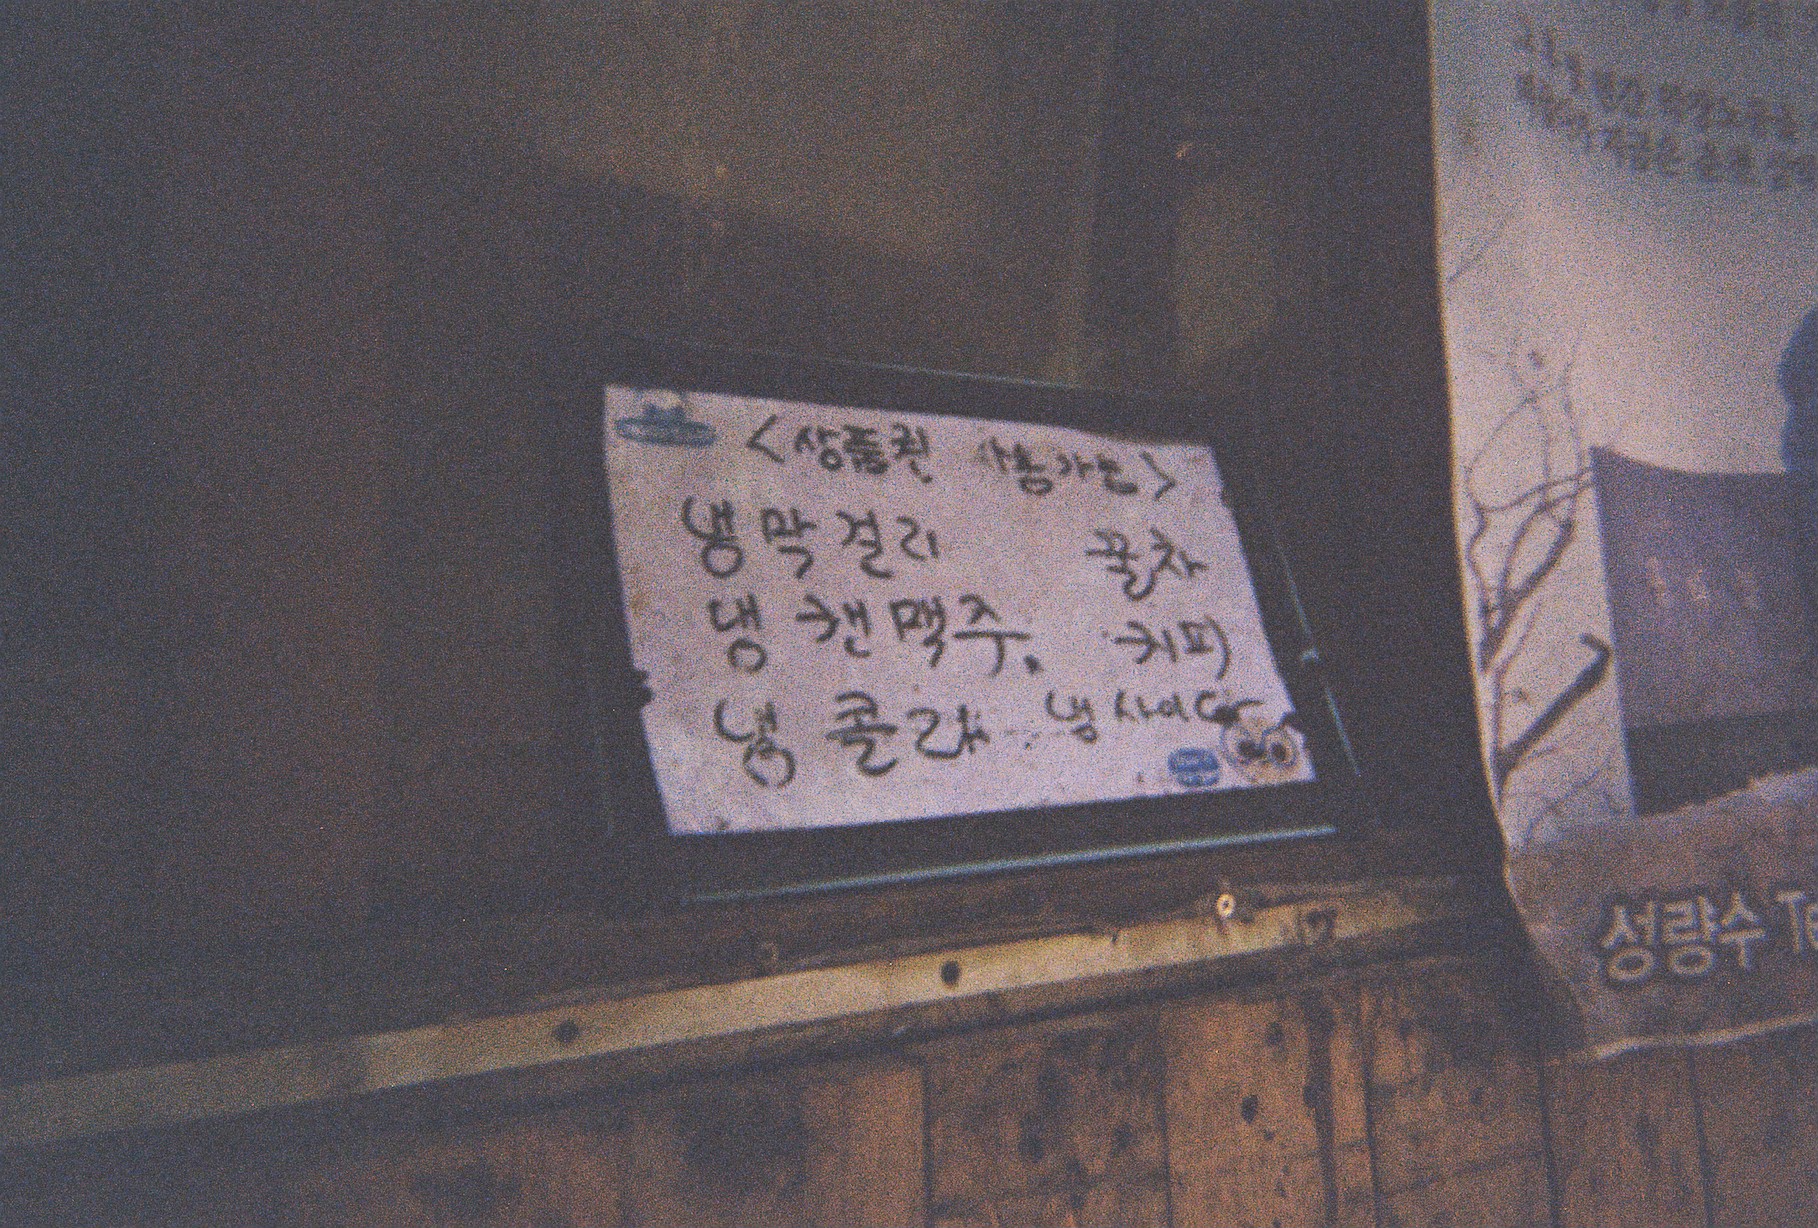 <상품권 사용가능>
냉막걸리 꿀차
냉 캔맥주. 커피
냉 콜라 냉사이다
성량수